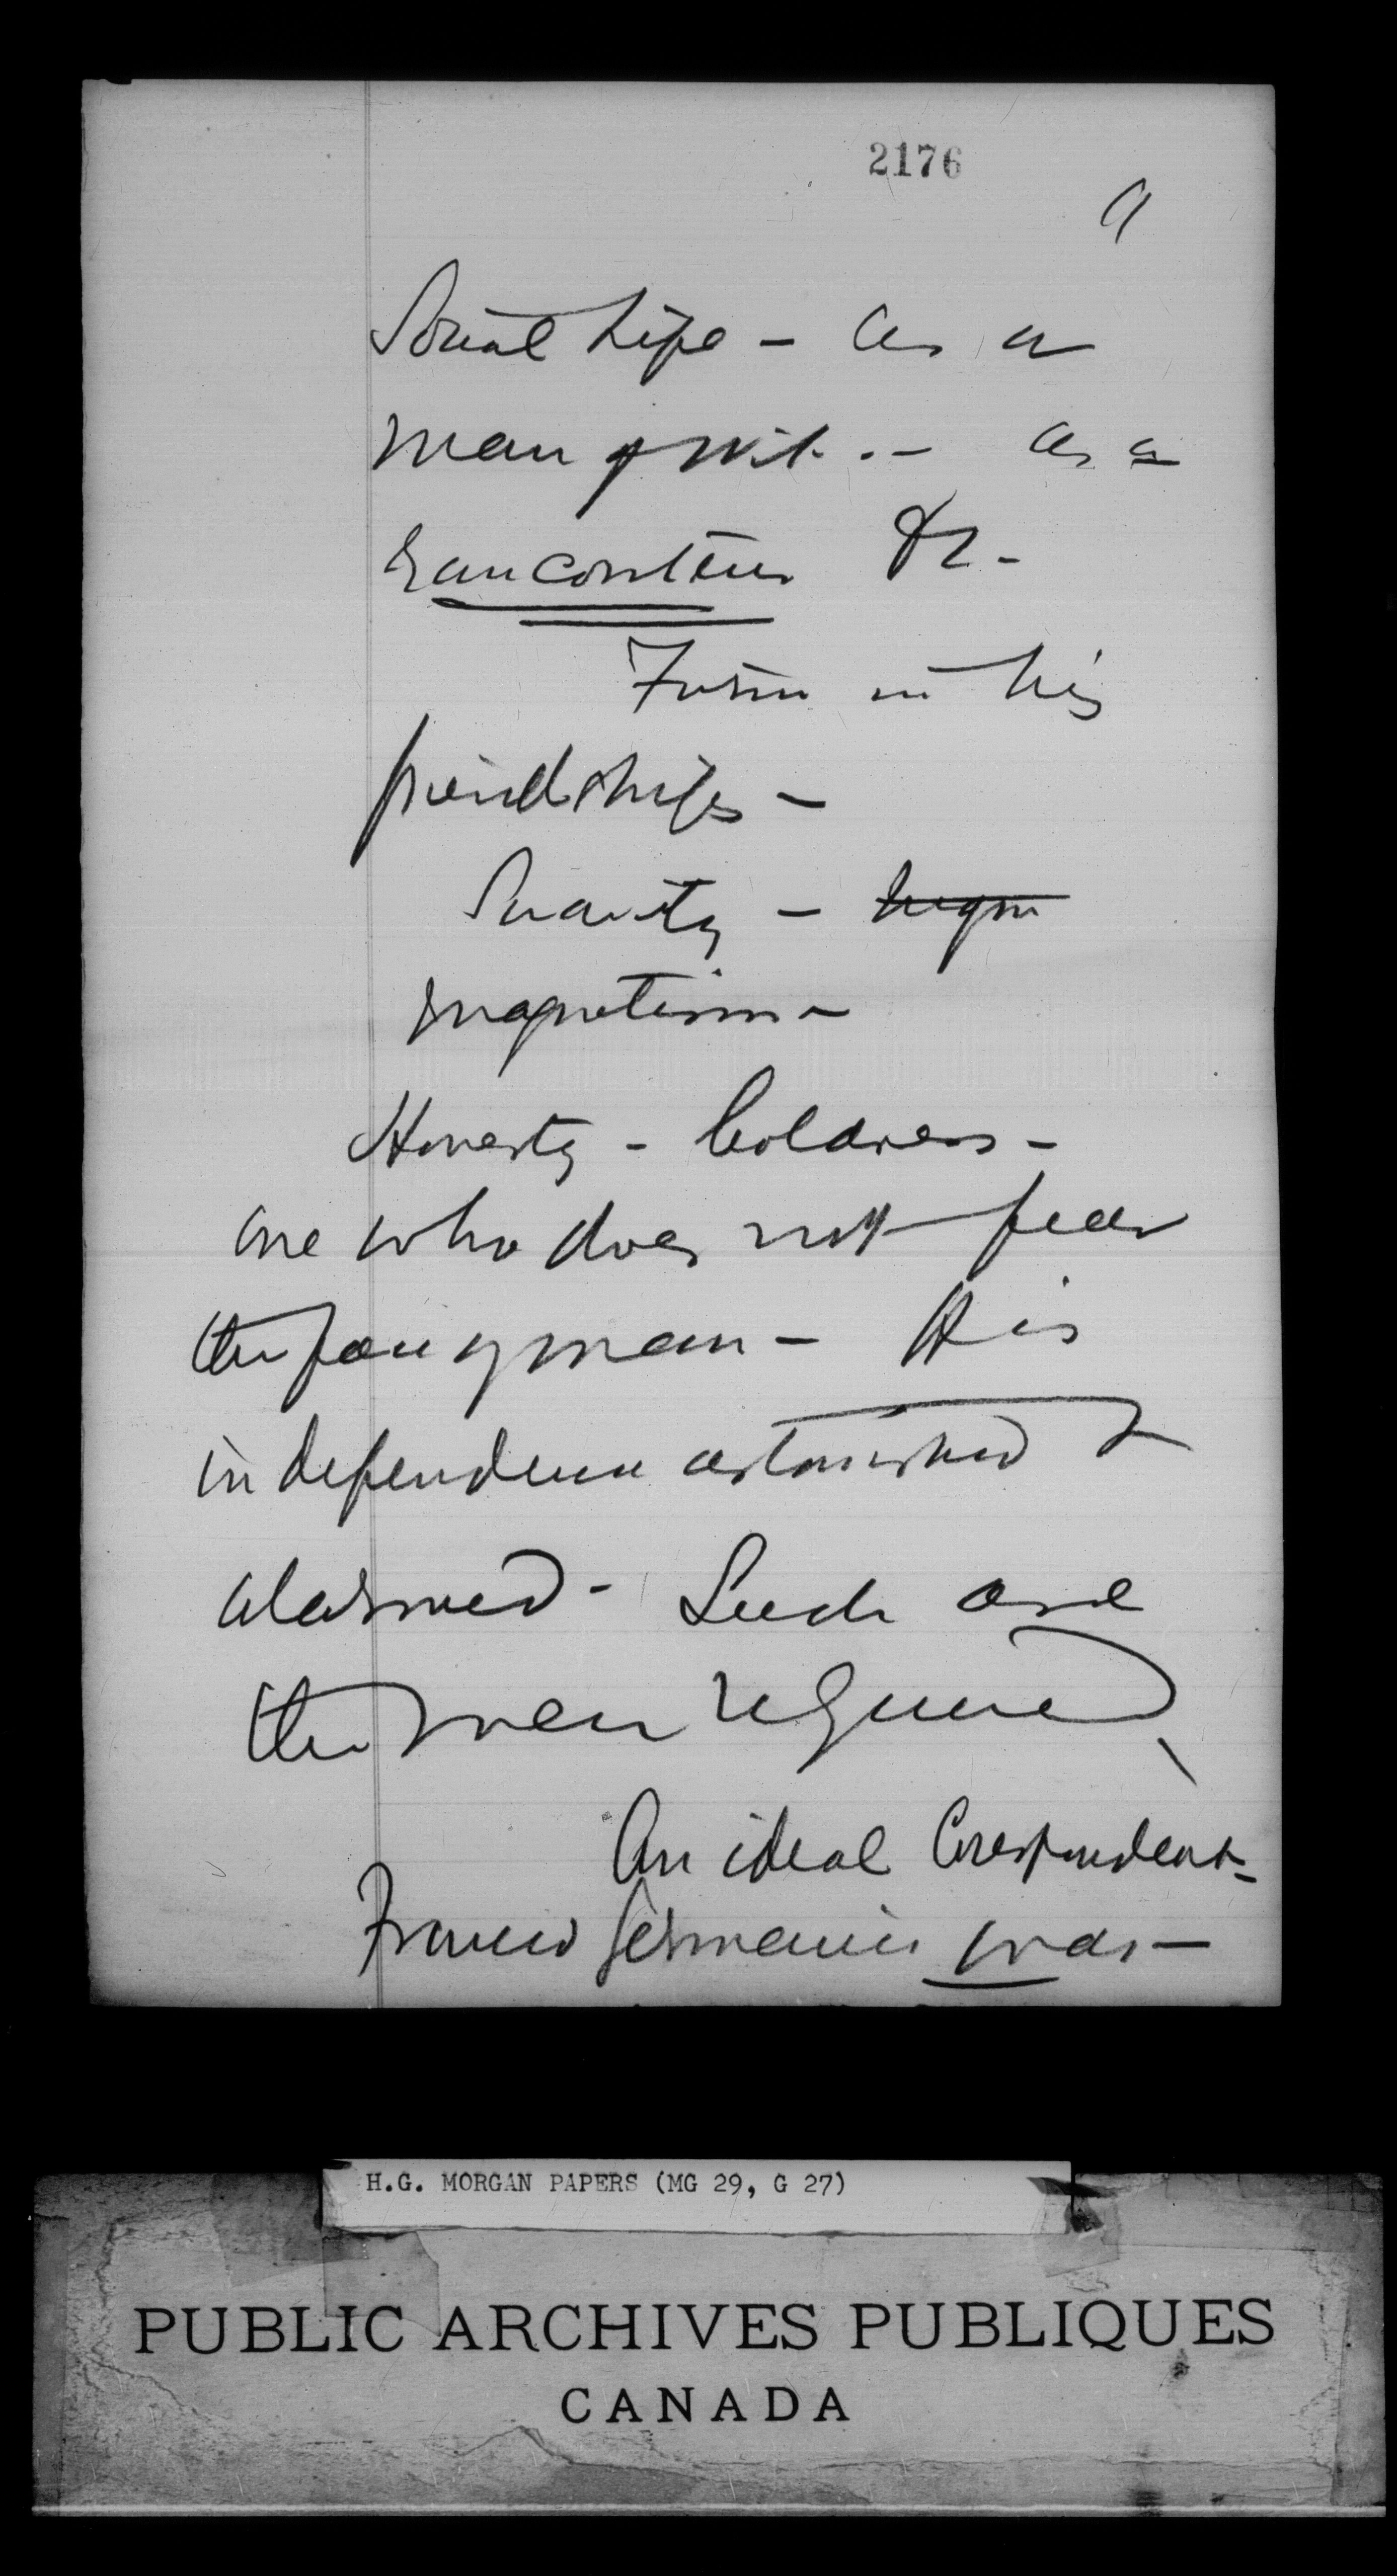 2176
9
Social life - As a
man of wit. - As a
Ranconteur &c -
Firm in his
friendships -
Suavity -
magnetism -
Honesty - Boldness -
one who does not fear
the face of man - His
independence astonished &
alarmed - Such are
the men required
An ideal Correspondent -
Franco Germanic war -
H.G. MORGAN PAPERS (MG 29, G 27)
PUBLIC ARCHIVES PUBLIQUES
CANADA